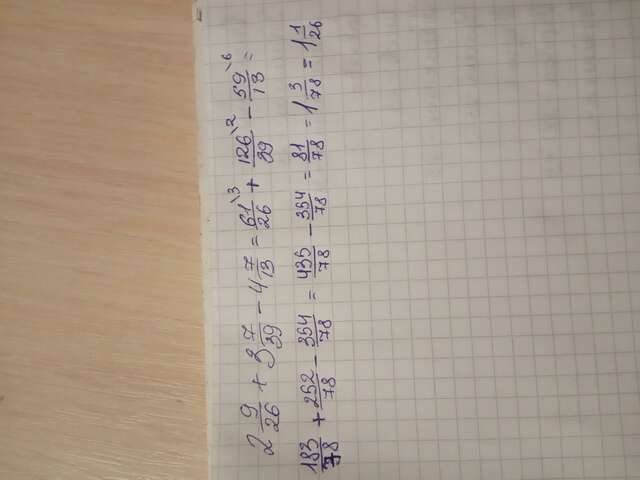 2 9/26 + 3 7/39 - 4 7/13 = 61/26 \3 + 126/39 \2 - 59/13 \6 =
183/78 + 252/78 - 354/78 = 435/78 - 354/78 = 81/78 = 1 3/78 = 1 1/26